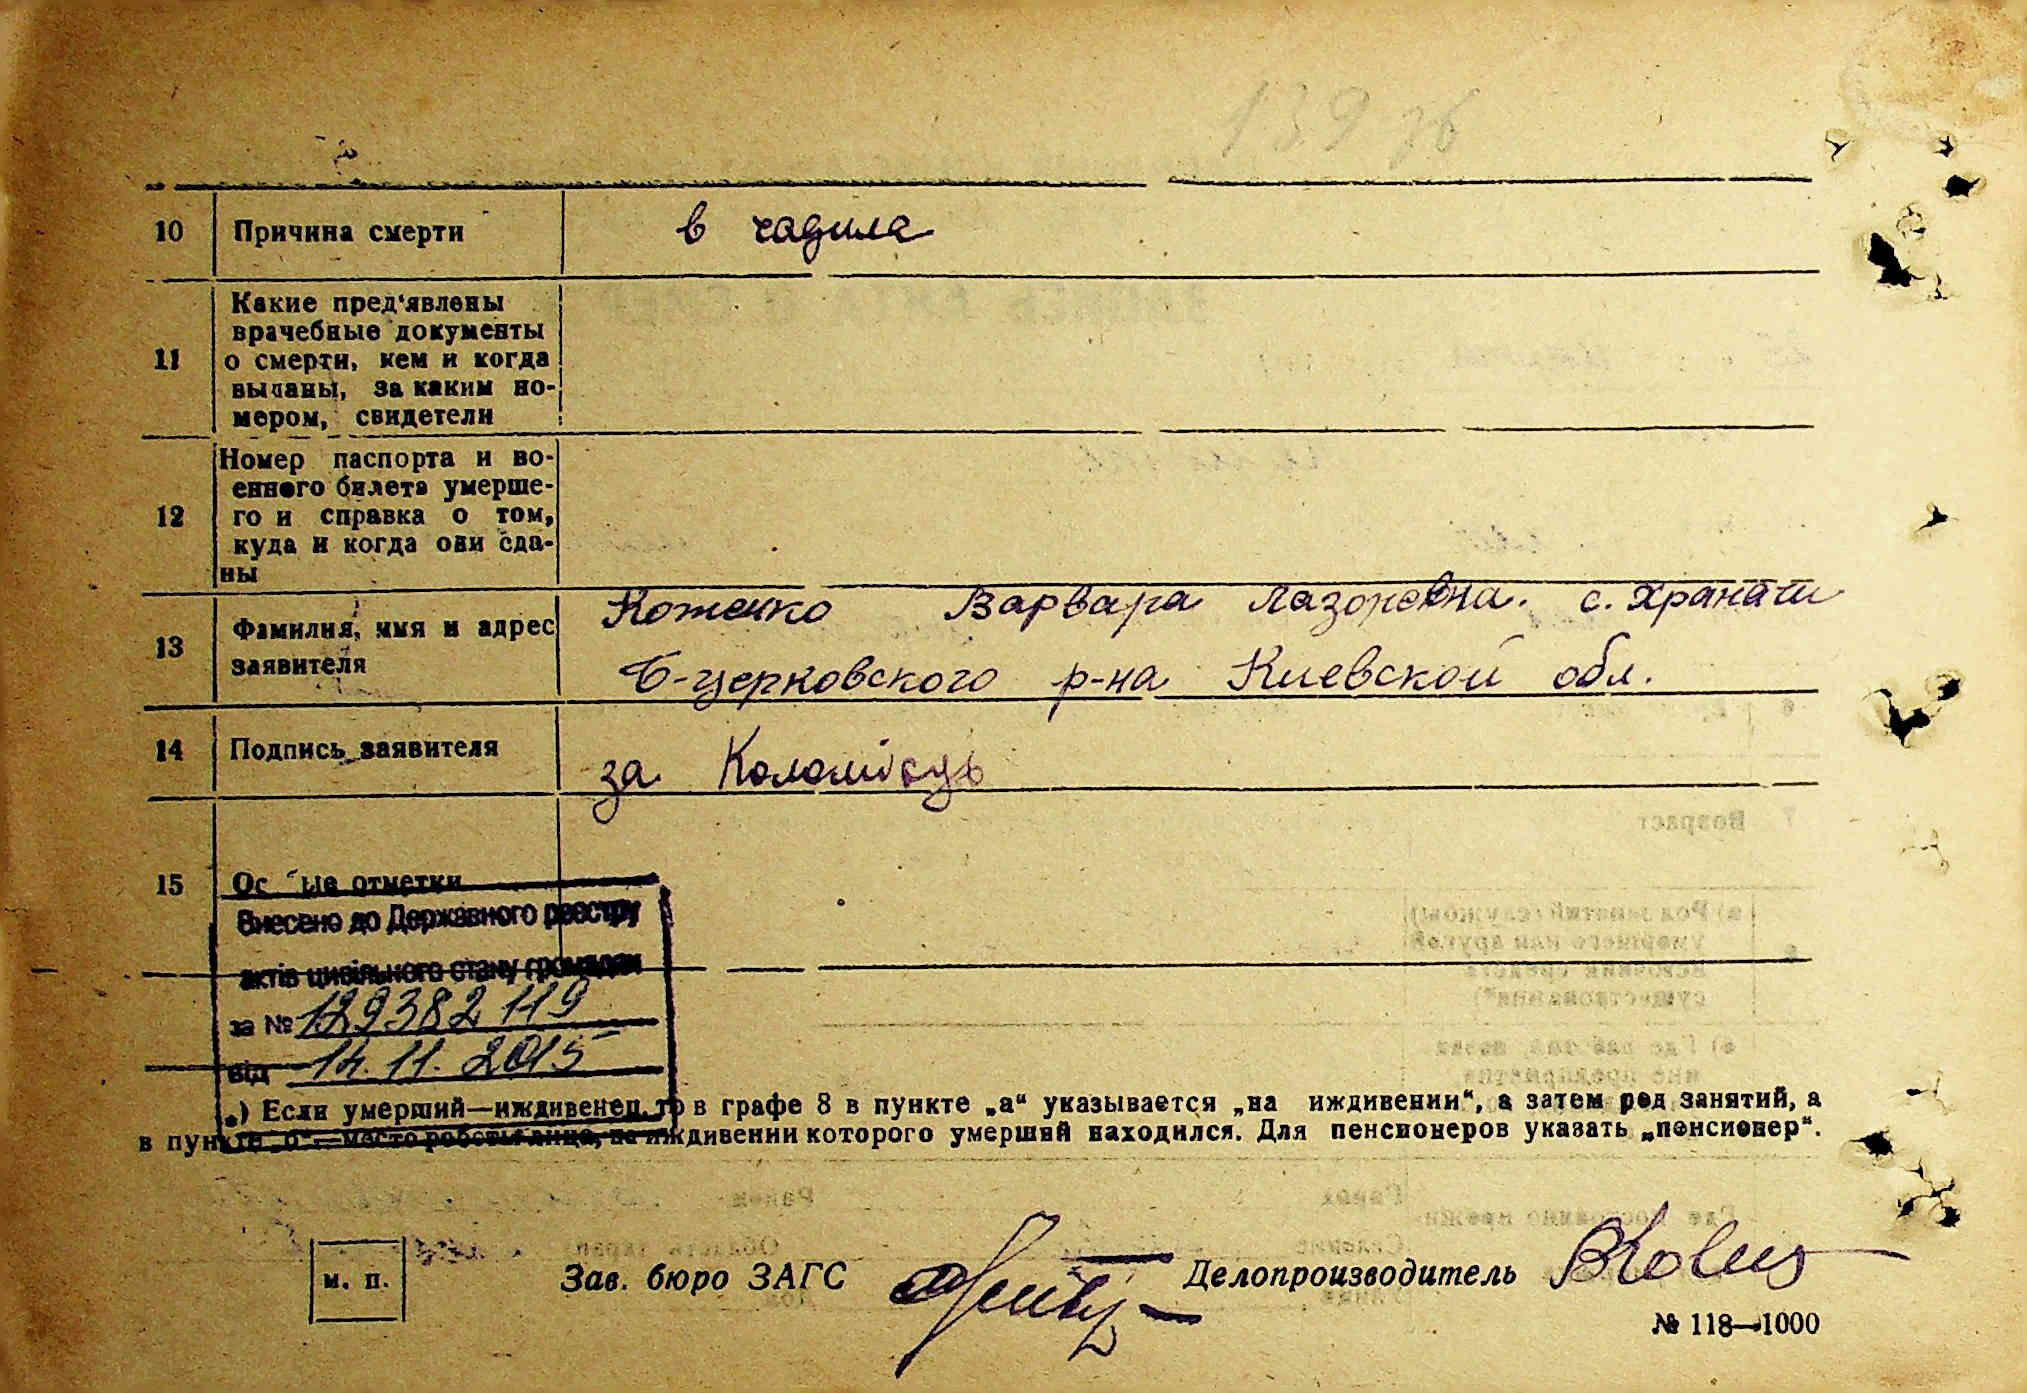 139 зв
10 Причина смерти в чадила
11 Какие пред'явлены
врачебные документы
о смерти, кем и когда
выданы, за каким но-
мером, свидетели
12 Номер паспорта и во-
енного билета умерше-
го и справка о том,
куда и когда они сда-
ны
13 Фамилия, имя и адрес
заявителя
Коженко Варвара Лазоровна. с. Храпачи
Б-церковского р-на Киевской обл.
14 Подпись заявителя за Коломієць
15 Особые отметки
Внесено до Державного реєстру
актів цивільного стану громадян
за № 129382119
від 14.11.2015
*) Если умерший—иждивенец, то в графе 8 в пункте „а“ указывается „на иждивении“, а затем род занятий, а
в пункте „б“—место работы лица, на иждивении которого умерший находился. Для пенсионеров указать „пенсионер“.
м. п. Зав. бюро ЗАГС Делопроизводитель
№ 118—1000